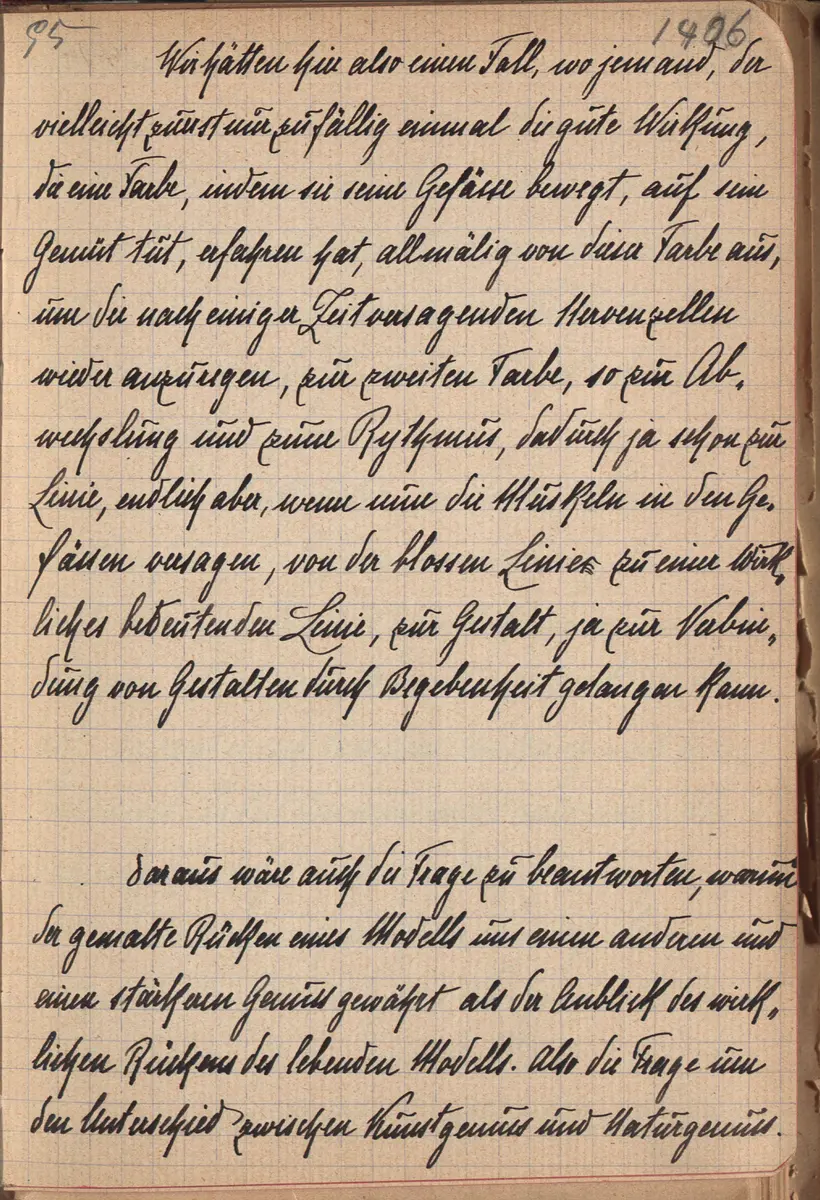 95
1406
Wir hätten hier also einen Fall, wo jemand, der
vielleicht zuerst nur zufällig einmal die gute Wirkung,
die eine Farbe, indem sie seine Gefässe bewegt, auf sein
Gemüt tut, erfahren hat, allmälig von dieser Farbe aus,
um die nach einiger Zeit versagenden Nervenzellen
wieder anzuregen, zur zweiten Farbe, so zur Ab-
wechslung und zum Rythmus, dadurch ja schon zur
Linie, endlich aber, wenn nun die Muskeln in den Ge-
fässen versagen, von der blossen Linie zu einer wirk-
liches bedeutenden Linie, zur Gestalt, ja zur Verbin-
dung von Gestalten durch Begebenheit gelangen kann.
Daraus wäre auch die Frage zu beantworten, warum
der gemalte Rücken eines Modells uns einen anderen und
einen stärkeren Genuss gewährt als der Anblick des wirk-
lichen Rückens des lebenden Modells. Also die Frage um
den Unterschied zwischen Kunstgenuss und Naturgenuss.